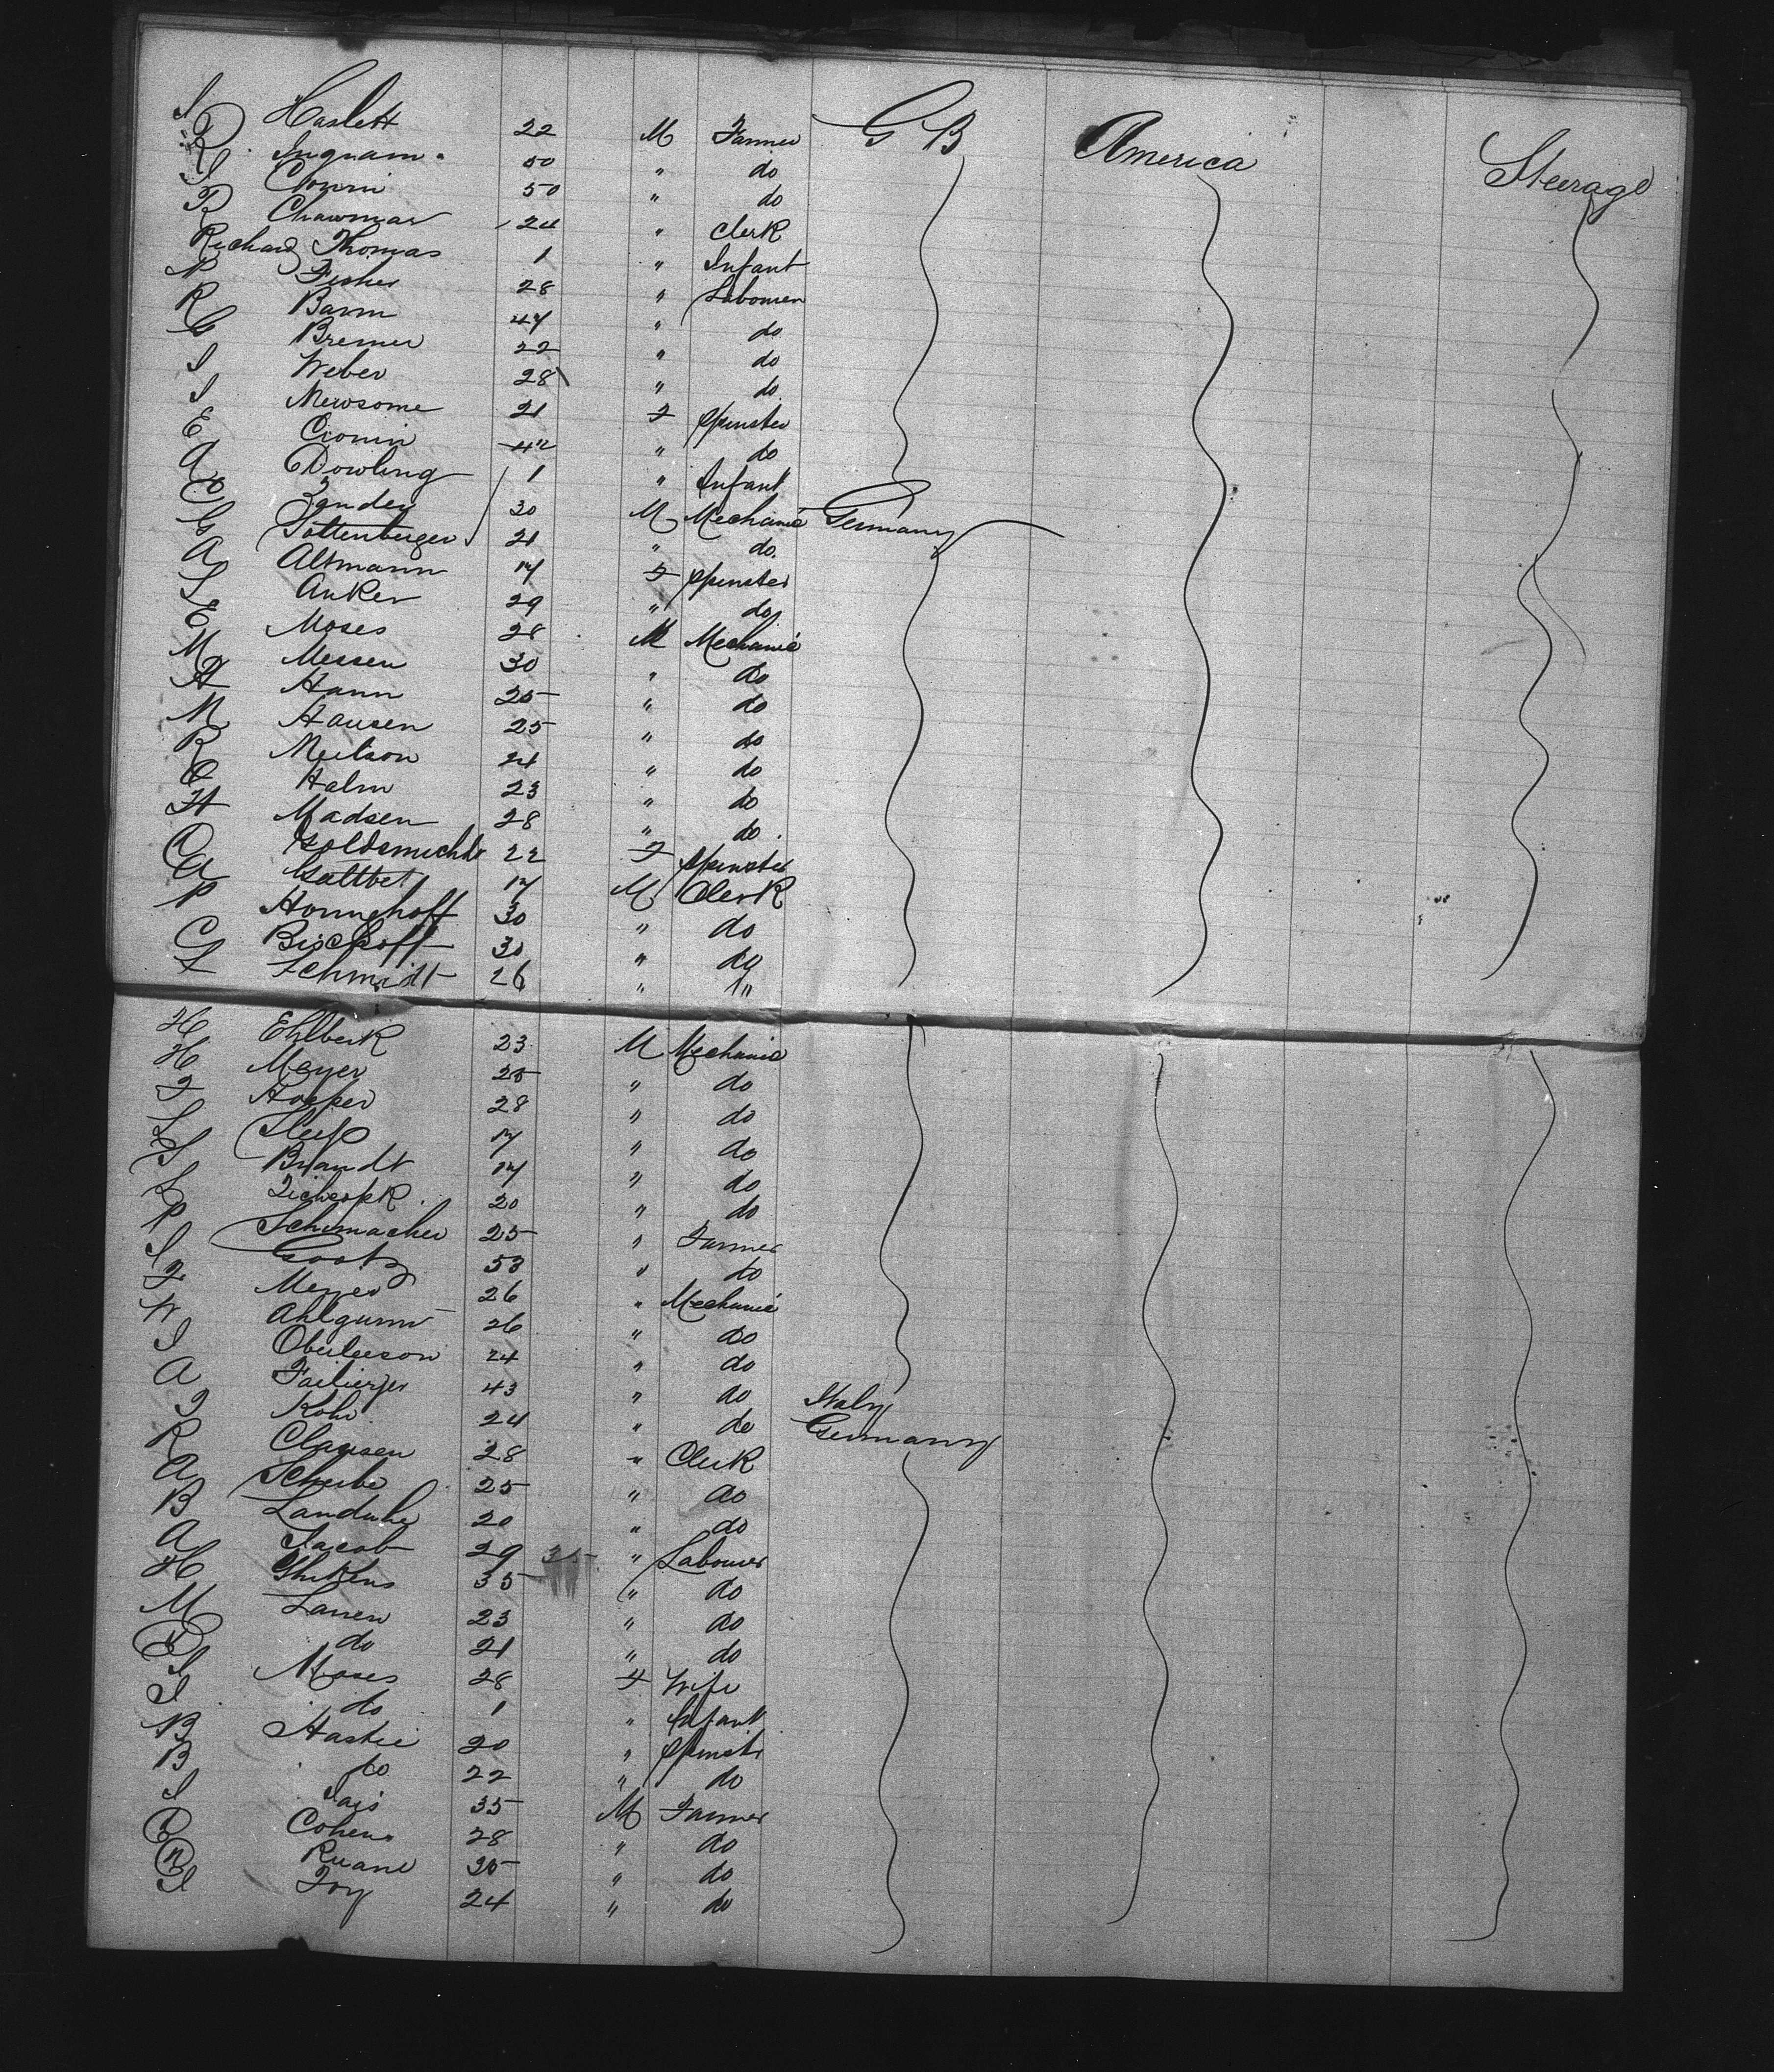 J Haslett 22 M Farmer G B America Steerage
R Ingram 50 " do
J Cronin 50 " do
R Chawmar 24 " Clerk
Richard Thomas 1 " Infant
N Fisher 28 " Labourer
R Barm 47 " do
C Bremer 22 " do
J Weber 28 " do
J Newsome 21 F Spinster
E Cronin 42 " do
A Dowling 1 " Infant
C Zander 30 M Mechanic Germany
G Sottenberger 21 " do
A Altmann 17 F Spinster
L Anker 29 " do
E Moses 28 M Mechanic
M Messen 30 " do
A Hann 25 " do
M Hausen 25 " do
R Meilson 24 " do
C Halm 23 " do
H Madsen 28 " do
C Goldsmichd 22 F Spinster
A Galtbet 17 M Clerk
P Honnehoff 30 " do
C Bischoff 30 " do
L Schmidt 26 " "
H Ehlberk 23 M Mechanic
H Meyer 25 " do
F Hosper 28 " do
L Sleep 17 " do
S Brandt 17 " do
L 20 " do
P Schumacher 25 " Farmer
J Gootz 53 " do
F Meyer 26 " Mechanic
W Ahlgurm 26 " do
J Oberleeson 24 " do
A 43 " do Italy
F Kohr 24 " do Germany
R Clausen 28 " Clerk
A Scheibe 25 " do
B 20 " do
A Jacob 29 " Labourer
H 35 " do
M Larren 23 " do
do 21 " do
J Moses 28 F Wife
J do 1 " Infant
B Haskie 20 " Spinster
B do 22 " do
J Jais 35 M Farmer
C Cohen 28 " do
Ruane 35 " do
J Foy 24 " do